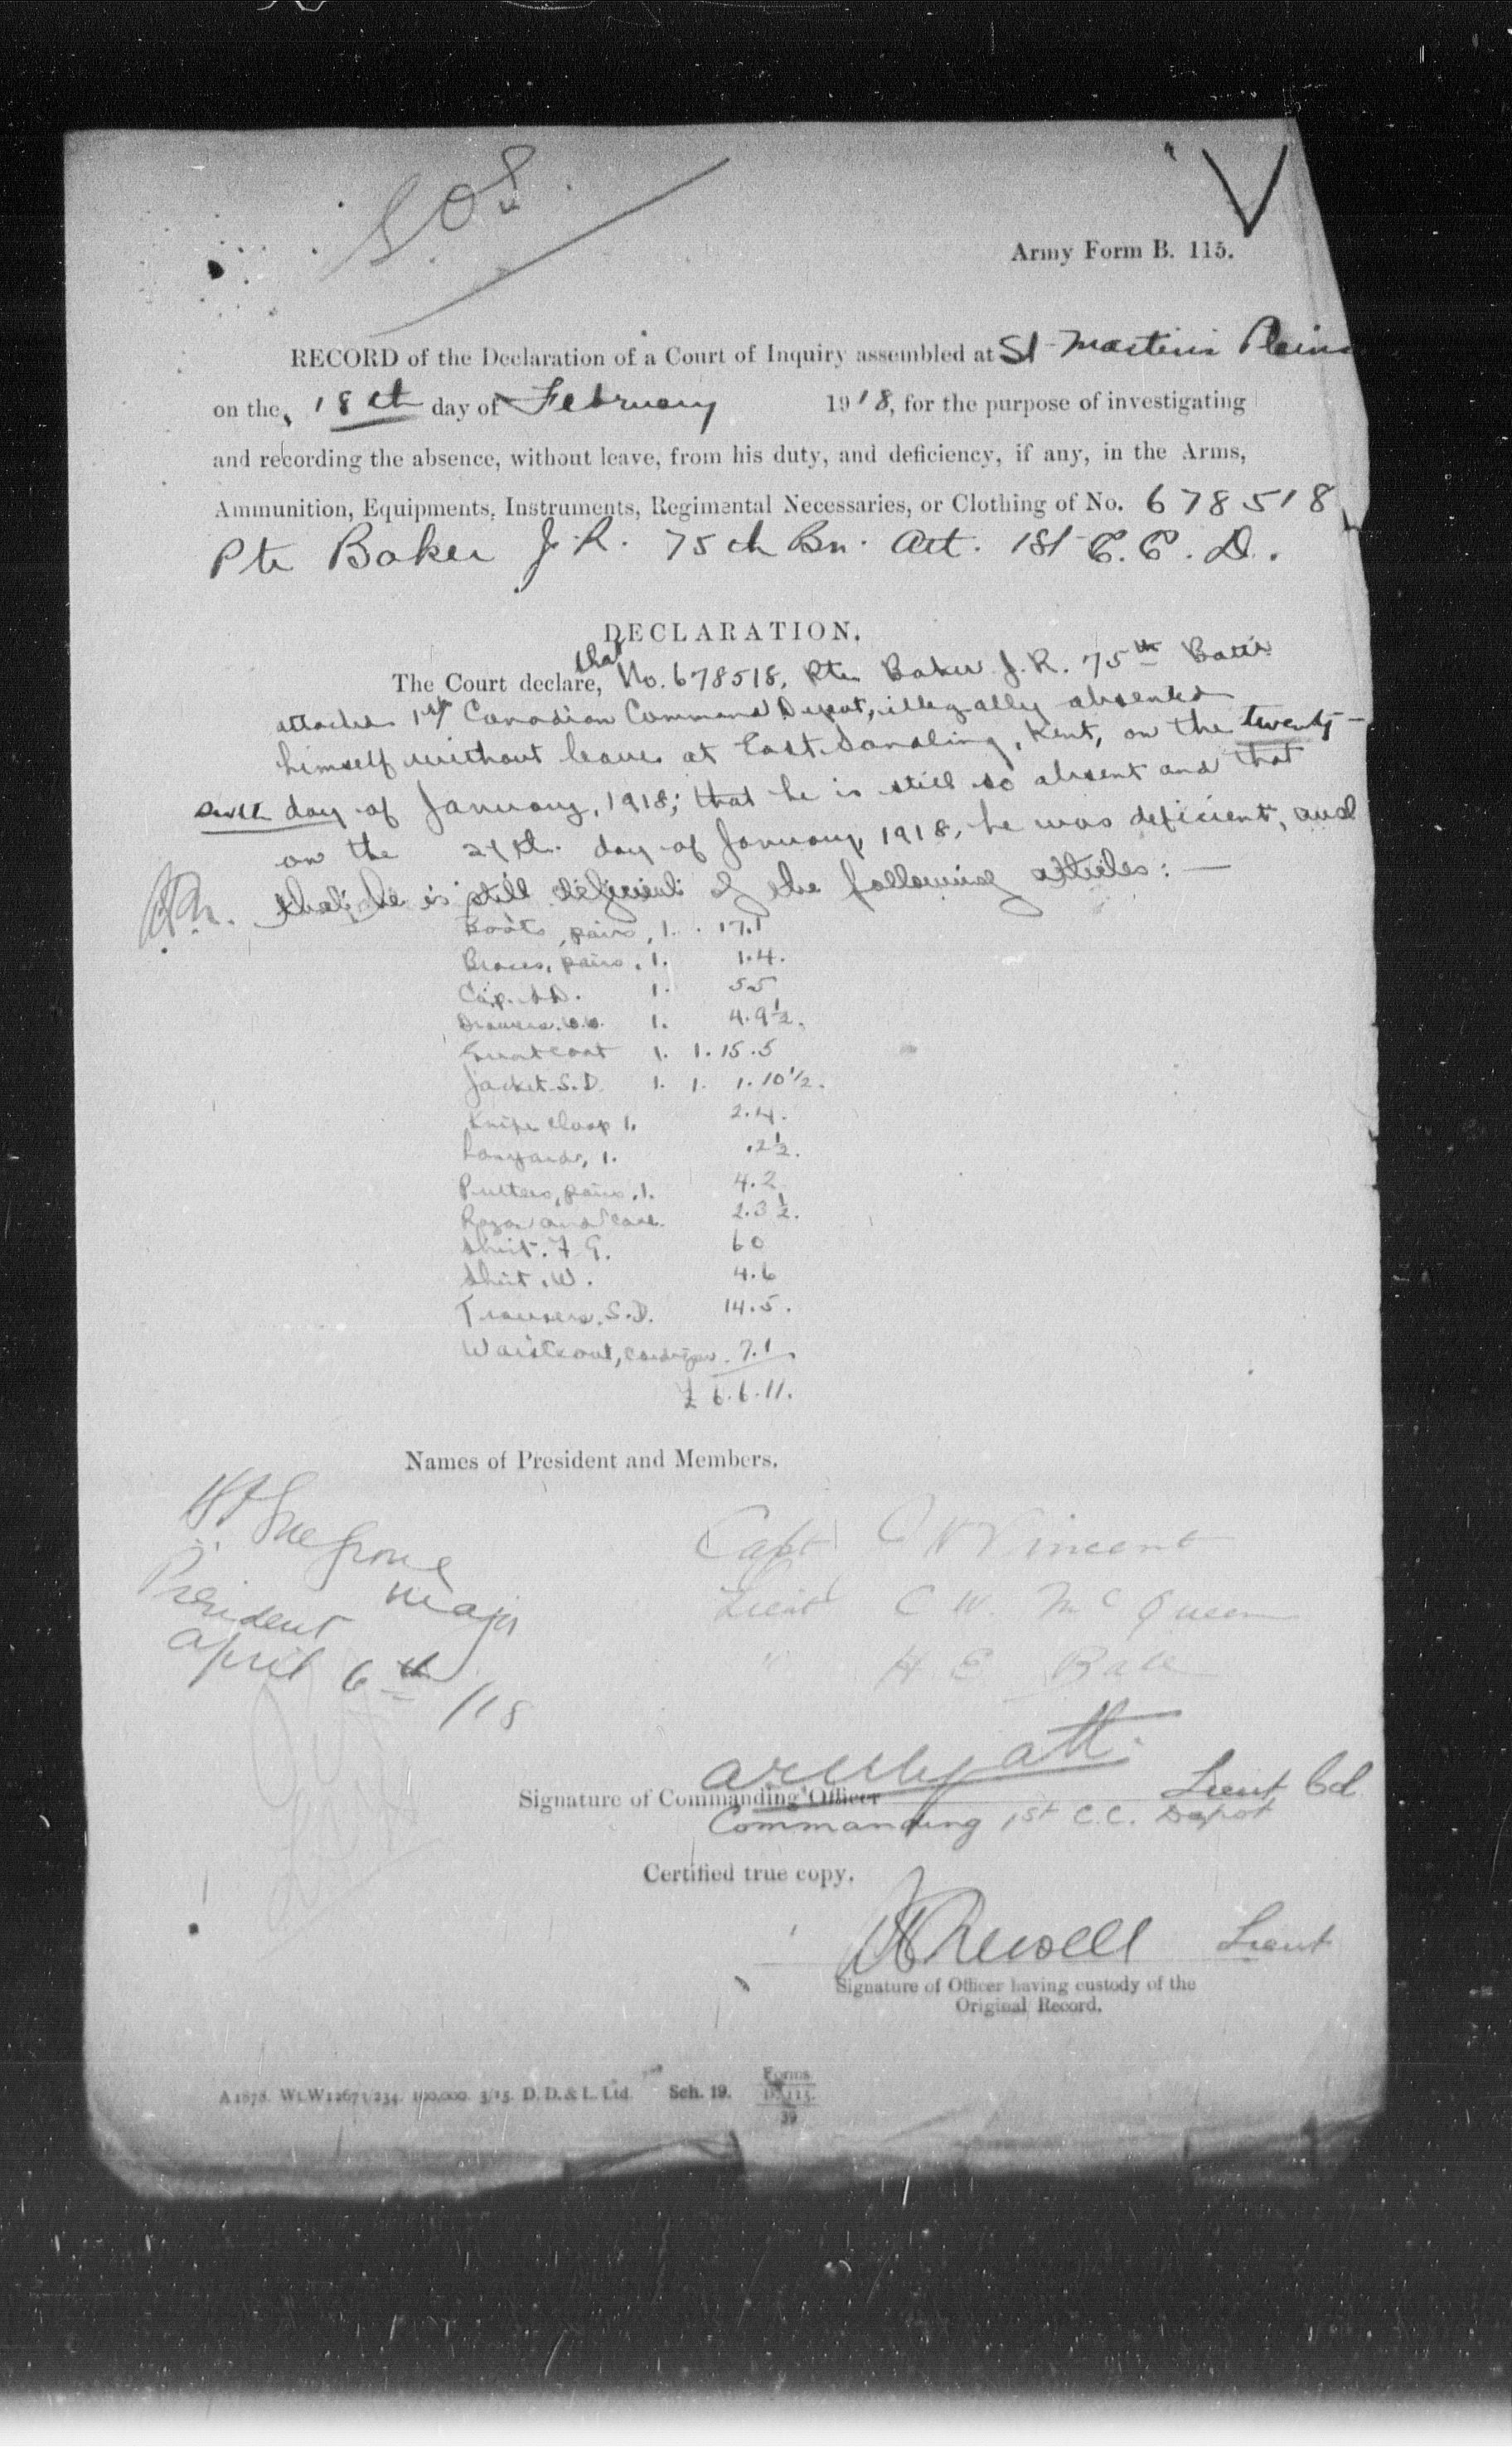 SOS
Army Form B. 115.
RECORD of the Declaration of a Court of Inquiry assembled at St Martins Plains
on the 18th day of February 1918, for the purpose of investigating
and recording the absence, without leave, from his duty, and deficiency, if any, in the Arms,
Ammunition, Equipments, Instruments, Regimental Necessaries, or Clothing of No. 678518
Pte Baker J.R. 75th Bn. Att. 1st C.C.D.
DECLARATION.
The Court declare, that No. 678518, Pte Baker J.R. 75th Battn
attached 1st Canadian Command Depot, illegally absented
himself without leave at East Sandling, Kent, on the twenty-
day of January, 1918; that he is still so absent and that
on the day of January, 1918, he was deficient, and
that he is still deficient of the following articles: —
Boots, pairs, 1. 17.1
Braces, pairs, 1. 1.4.
Cap. S.D. 1. 5.5
Drawers. 1. 4.9½.
Great coat 1. 1.15.5
Jacket S.D. 1. 1. 1.10½.
Knife clasp 1. 2.4.
Lanyards, 1. .2½.
Puttees, pairs, 1. 4.2
Razor and case. 2.3½.
Shirt. F.G. 6 0
Shirt. W. 4.6
Trousers. S.D. 14.5.
Waistcoat, cardigan. 7.1
£ 6.6.11.
Names of President and Members.
Major
President
April 6th /18
Capt Vincent
Lieut C W. McQueen
" H E Ball
Signature of Commanding Officer Lieut Col
Commanding 1st C.C. Depot
Certified true copy.
Lieut
Signature of Officer having custody of the
Original Record.
A 1878. Wt. W12671/234. 100,000. 3/15. D. D. & L. Ltd. Sch. 19. Forms
B. 115.
39